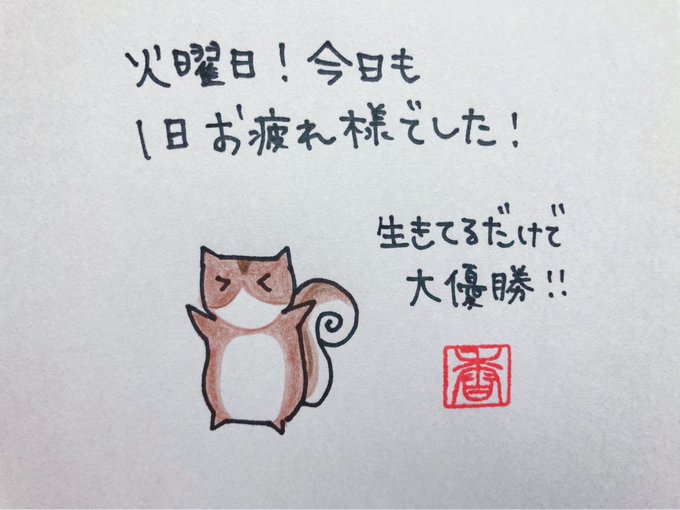 火曜日！今日も
1日お疲れ様でした！
生きてるだけで
大優勝！！
香